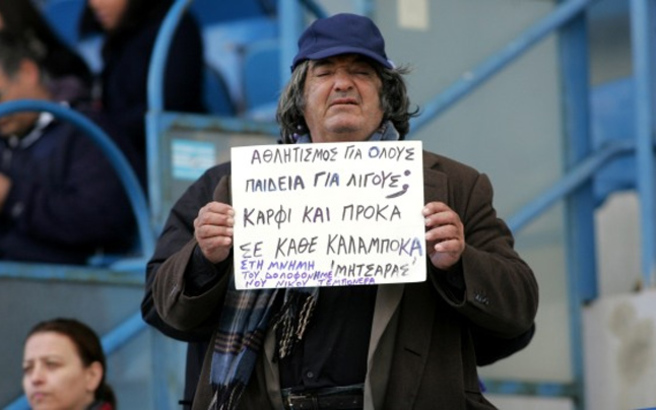 ΑΘΛΗΤΙΣΜΟΣ ΓΙΑ ΟΛΟΥΣ
ΠΑΙΔΕΙΑ ΓΙΑ ΛΙΓΟΥΣ;
ΚΑΡΦΙ ΚΑΙ ΠΡΟΚΑ
ΣΕ ΚΑΘΕ ΚΑΛΑΜΠΟΚΑ
ΣΤΗ ΜΝΗΜΗ 'ΜΗΤΣΑΡΑΣ'
ΤΟΥ ΔΟΛΟΦΟΝΗΜΕ
ΝΟΥ ΝΙΚΟΥ ΤΕΜΠΟΝΕΡΑ